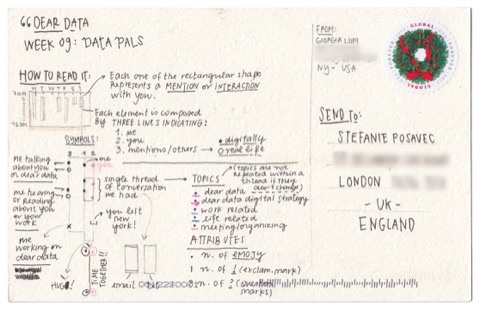 "DEAR DATA
WEEK 09: DATA PALS
HOW TO READ IT:
M T W T F S S
Each one of the rectangular shape
Represents a MENTION or INTERACTION
with you.
Each element is composed
By THREE LINES INDICATING:
1. me
2. you
3. mentions/others
digitally
real life
SYMBOLS:
me talking
about you
or dear data
me hearing
or reading
about you
or your
work
me
working on
dear data
me
you
single thread
of conversation
we had
you left
new york!
TIME TOGETHER!!
HUG!
email
TOPICS
(topics are not
repeated within a
thread if they
don't change)
dear data
dear data digital strategy
work related
life related
meeting/organizing
ATTRIBUTES
n. of EMOJY
n. of ! (exclam. mark)
n. of ? (question
marks)
FROM:
GIORGIA LUPI
NY - USA
GLOBAL
SEND TO:
STEFANIE POSAVEC
LONDON
- UK -
ENGLAND